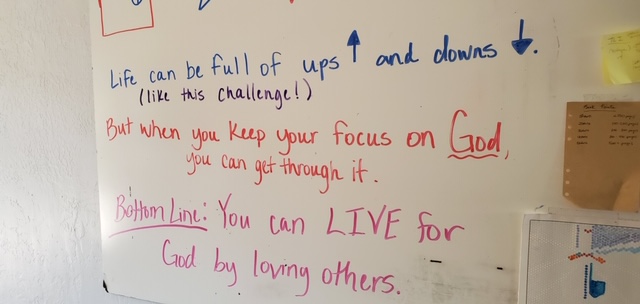 Life can be full of ups ↑ and downs ↓.
(like this challenge!)
But when you keep your focus on God,
you can get through it.
Bottom Line: You can LIVE for
God by loving others.